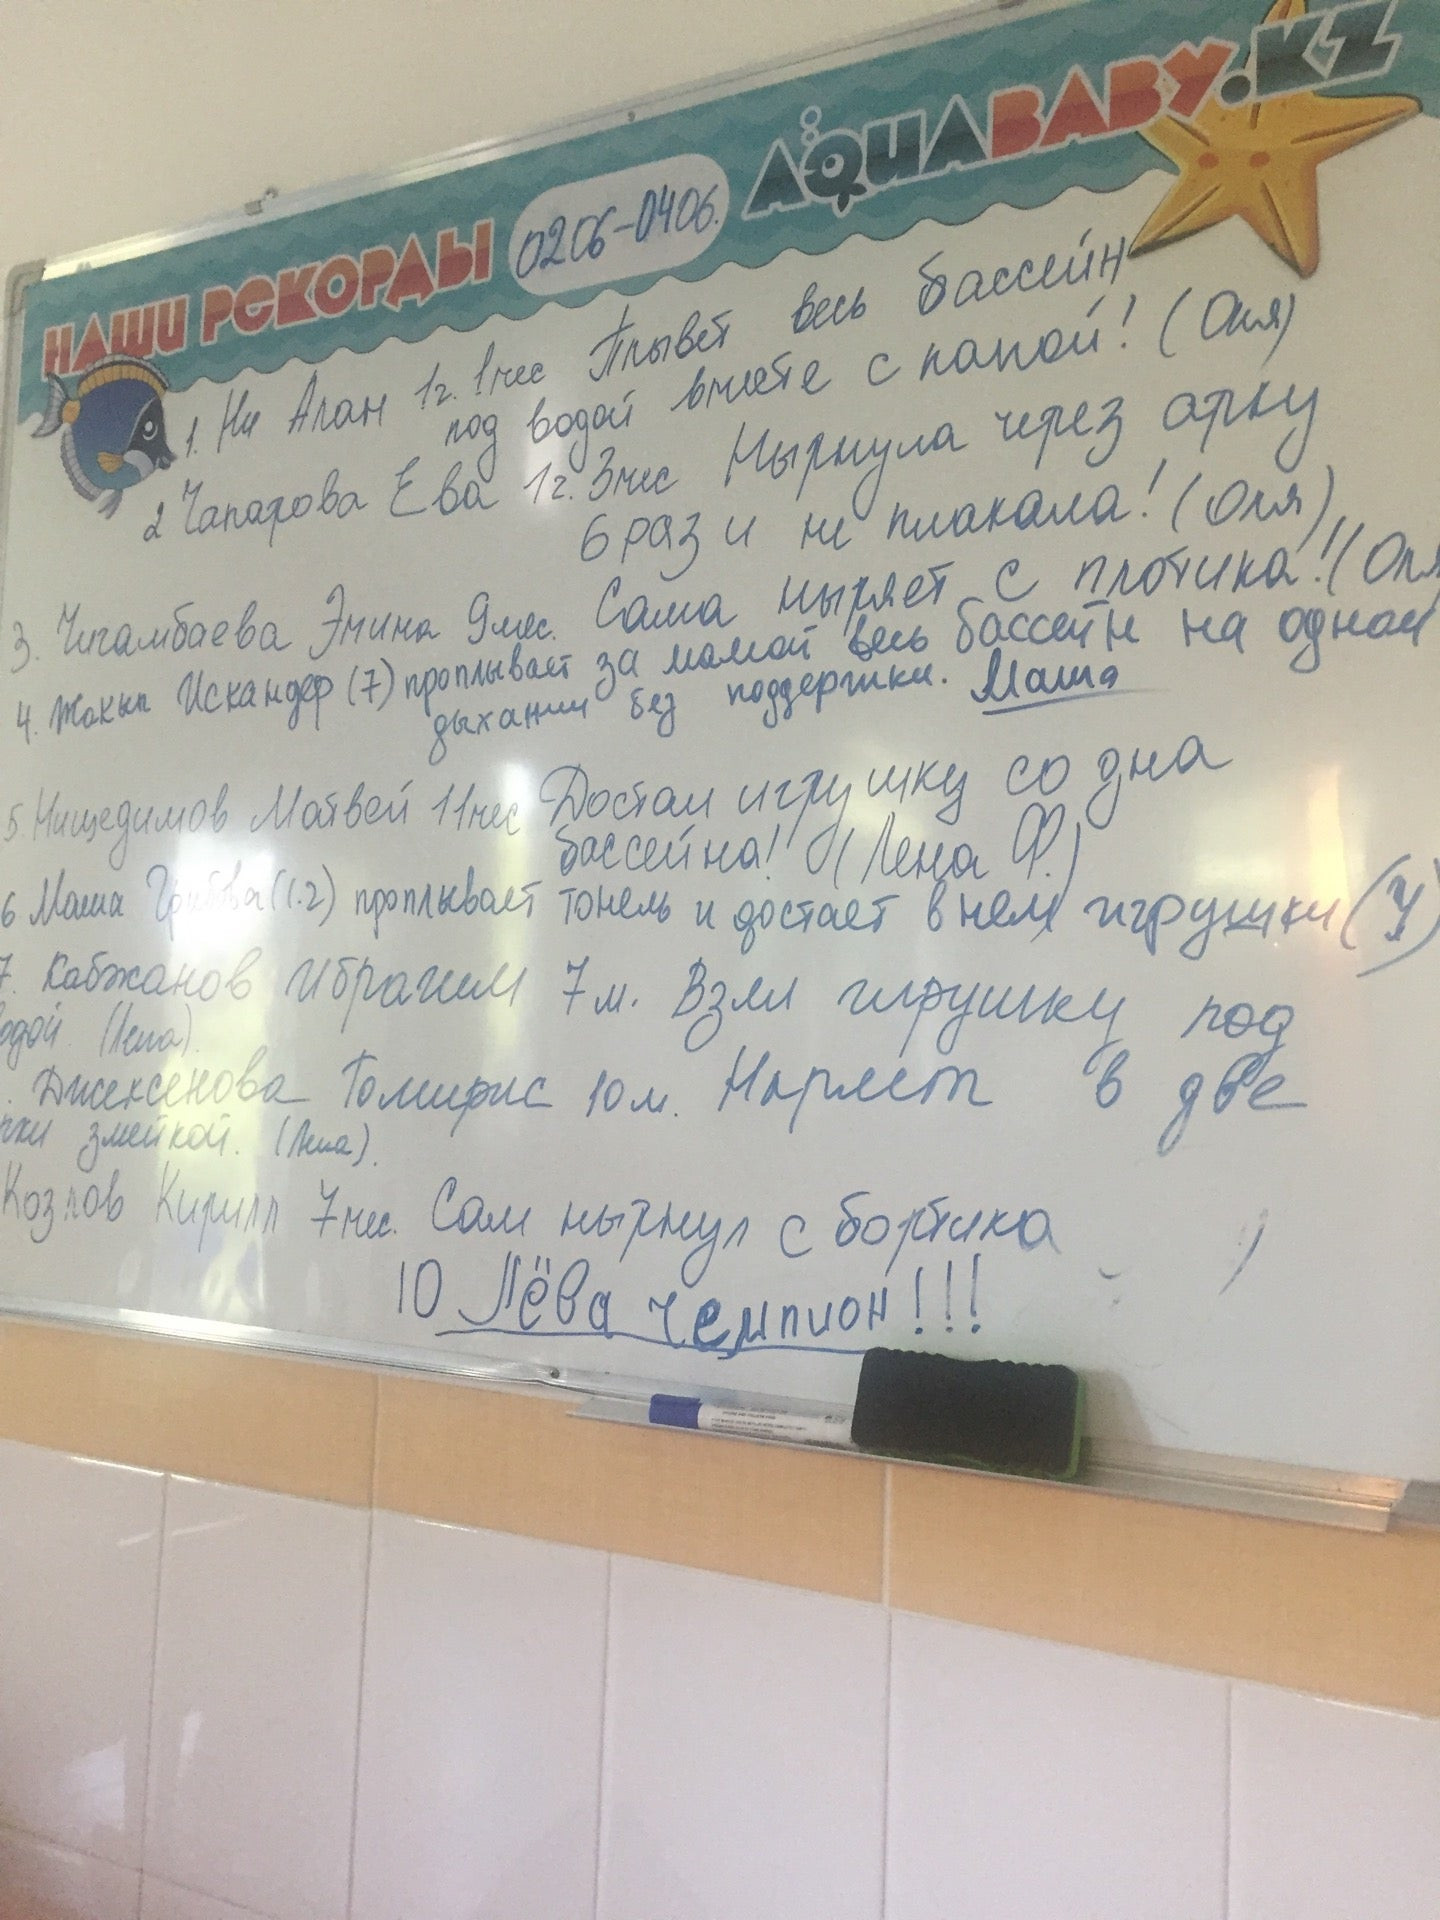 НАШИ РЕКОРДЫ 0206-0406. AQUABABY.KZ
1. Ни Алан 1г. 1мес Плывёт весь бассейн
под водой вместе с папой! (Оля)
2 Чапарова Ева 1г. 3мес Нырнула через арку
6 раз и не плакала! (Оля)
3. Чигамбаева Эмина 9мес. Сама ныряет с плотика!! (Оля
4. Жакып Искандер (7) проплывает за мамой весь бассейн на одном
дыхании без поддержки. Маша
5. Нищедимов Матвей 11мес Достал игрушку со дна
бассейна! (Лена Ф.)
6 Маша (1.2) проплывает тонель и достает в нем игрушки (У)
7. Кабжанов Ибрагим 7м. Взял игрушку под
одой. (Лена).
. Джексенова Томирис 10м. Ныряет в две
змейкой. (Лена).
Козлов Кирилл 7мес. Сам нырнул с бортика
10 Лёва чемпион!!!